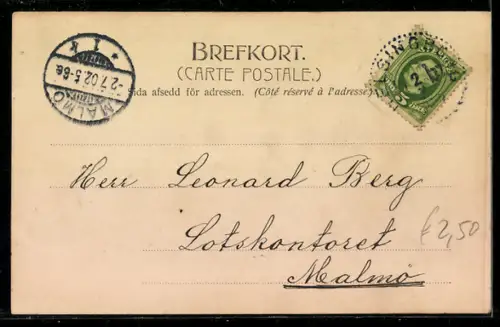 BREFKORT.
(CARTE POSTALE.)
Sida afsedd för adressen. (Côté réservé à l'adresse)
MALMÖ
-2.7.02.5-6e.
* 1 K *
HELSINGBORG
Herr Leonard Berg
Lotskontoret
Malmö
£2,50